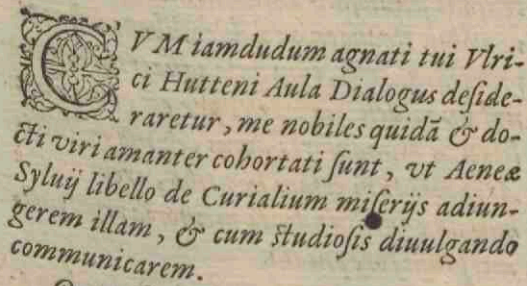 CVM iamdudum agnati tui Vlri-
ci Hutteni Aula Dialogus deſide-
raretur, me nobiles quidã & do-
cti viri amanter cohortati ſunt, vt Aeneæ
Syluij libello de Curialium miſerijs adiun-
gerem illam, & cum ſtudioſis diuulgando
communicarem.